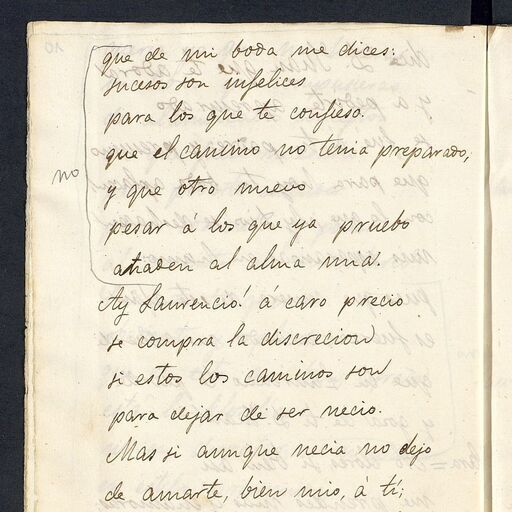 que de mi boda me dices:
sucesos son infelices
para los que te confieso.
que el camino no tenia preparado,
no
y que otro nuevo
pesar á los que ya pruebo
añaden al alma mia.
Ay Laurencio! á caro precio
se compra la discrecion
si estos los caminos son
para dejar de ser necio.
Mas si aunque necia no dejo
de amarte, bien mio, á tí;